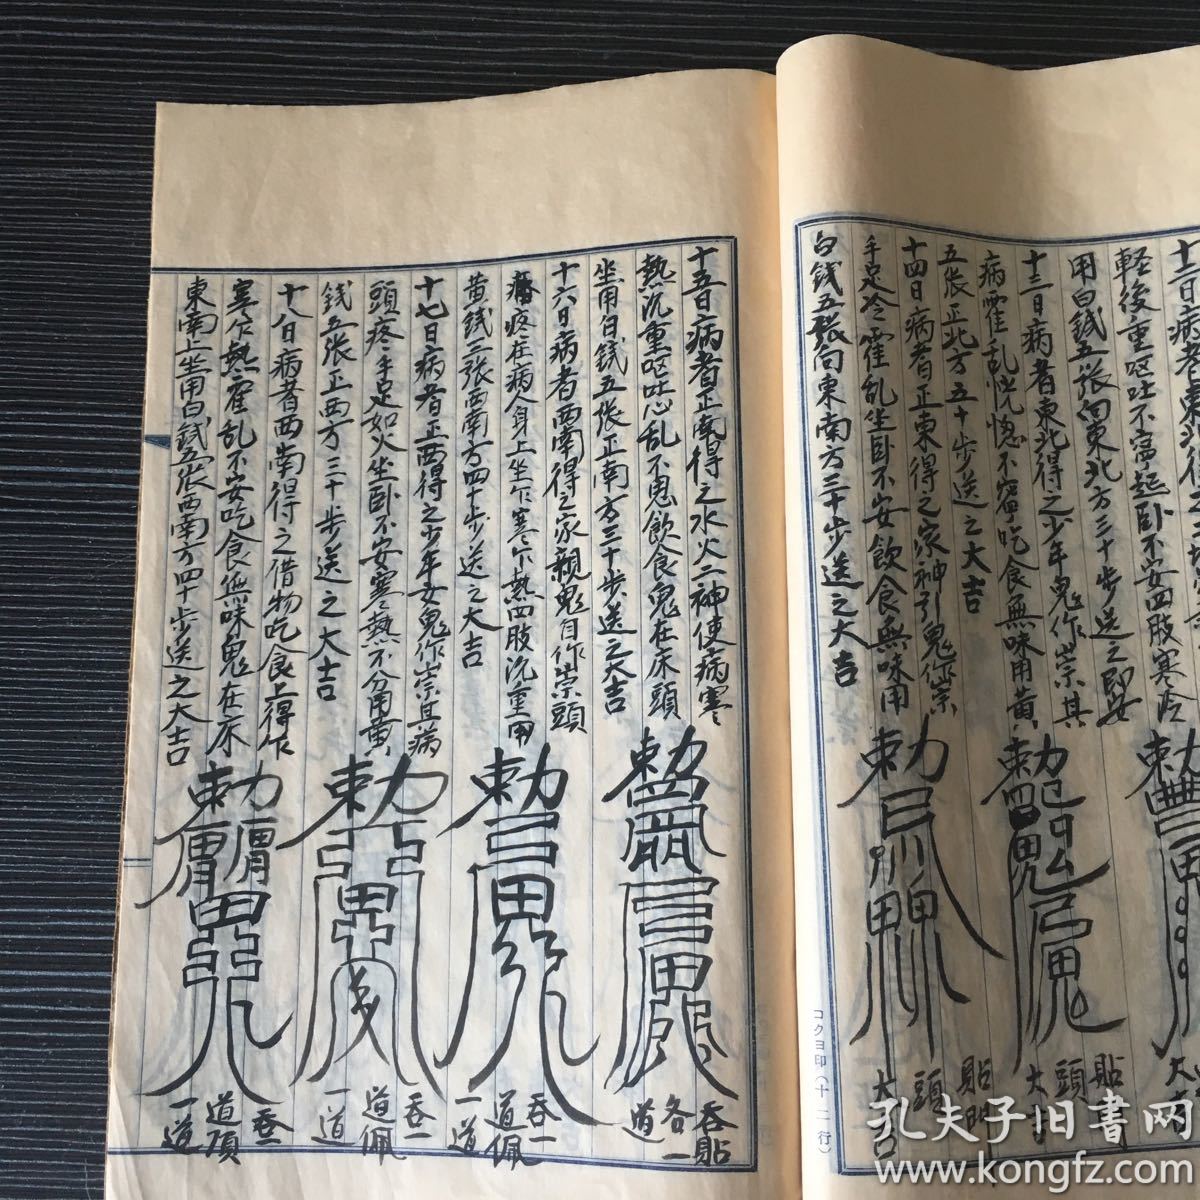 十二日病者東北得
軽後重呕吐不寧起卧不安四肢寒冷
用白銭五张向東北方三十步送之即安
十三日病者東北得之少年鬼作崇其
病霍乱恍惚不寧吃食無味用黄
五张正北方五十步送之大吉
十四日病者正東得之家神引鬼作崇
手足冷霍乱坐卧不安飲食無味用
白銭五张向東南方三十步送之大吉
貼
頭
大
貼門
頭
大吉
コクヨ印(十二行)
十五日病者正南得之水火二神使病寒
熱沉重呕吐心乱不思飲食鬼在床頭
坐用白銭五张正南方三十步送之大吉
十六日病者西南得之家親鬼自作崇頭
疼在病人身上坐乍寒乍熱四肢沉重用
黄銭三张西南方四十步送之大吉
十七日病者正西得之少年女鬼作崇其病
頭疼手足如火坐卧不安寒熱不分用黄
銭五张正西方三十步送之大吉
十八日病者西南得之借物吃食上得乍
寒乍熱霍乱不安吃食無味鬼在床
東南上坐用白銭五张西南方四十步送之大吉
吞貼
各一
道
吞一
道佩
一道
吞一
道佩
一道
吞一
道頂
一道
孔夫子旧書网
www.kongfz.com